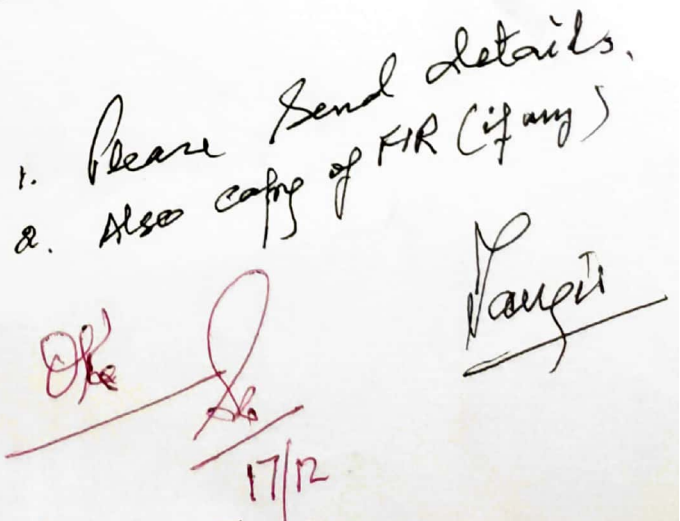 1. Please Send details.
2. Also copy of FIR (if any)
17/12